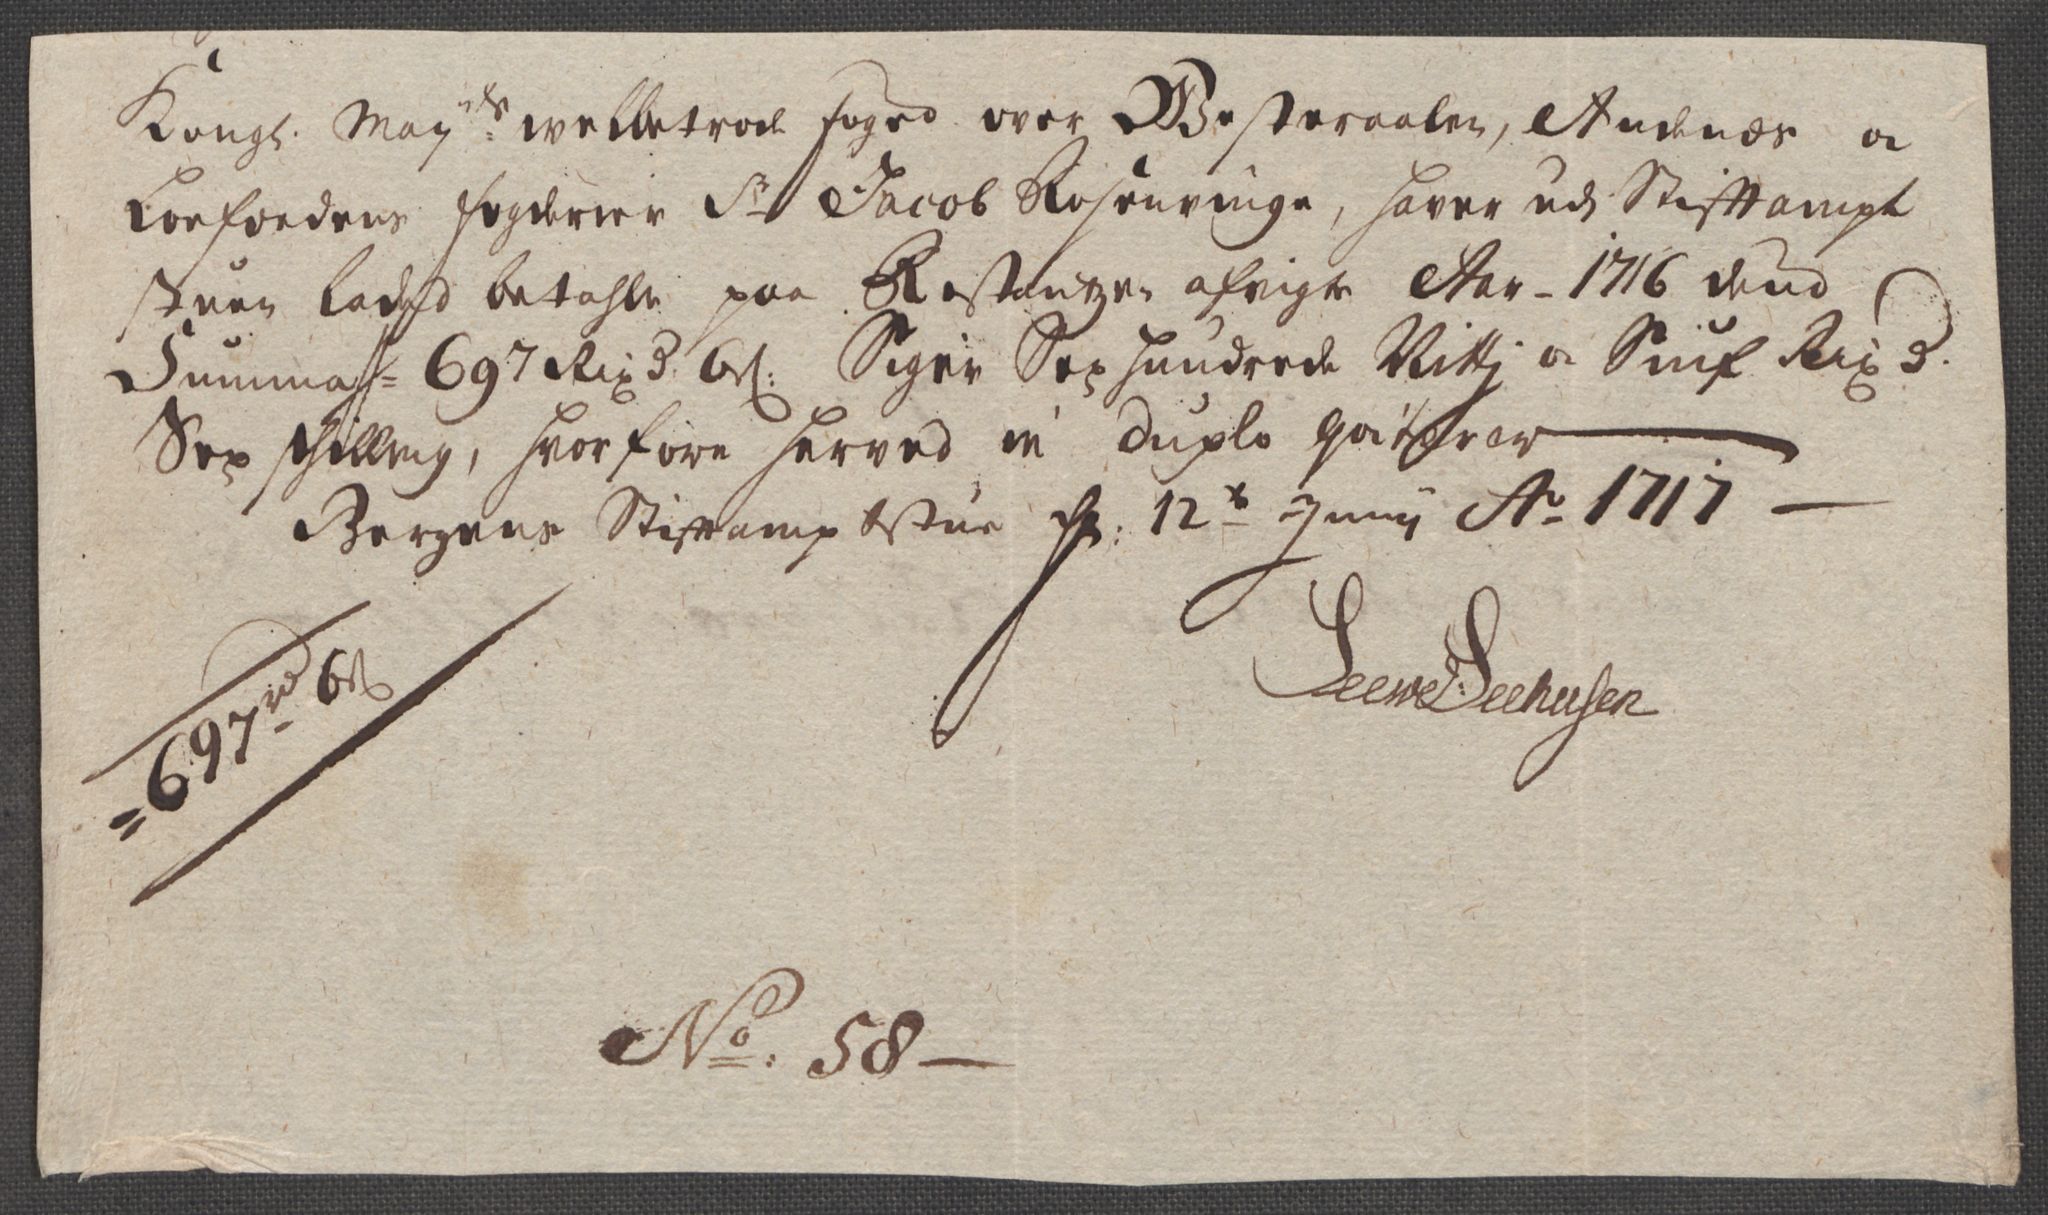 Kongl. May.ts welbetrode foged over Westeraalen, Andenæs oc
Loefodens fogderier Sr Jacob Rosenvinge, haver udj Stifftampt
stuen ladet betahle paa Restantzen afvigte Aar 1716 dend
Summa = 697 Rixd. 6 s: Siger Sex hundrede Nittj oc Siuf Rixd.
Sex skilling, hvorfore herved in duplo qviterer
Bergens Stifftamptstue d. 12te Junij Ao 1717
Seewe Seehusen
= 697 rd 6 s
No. 58